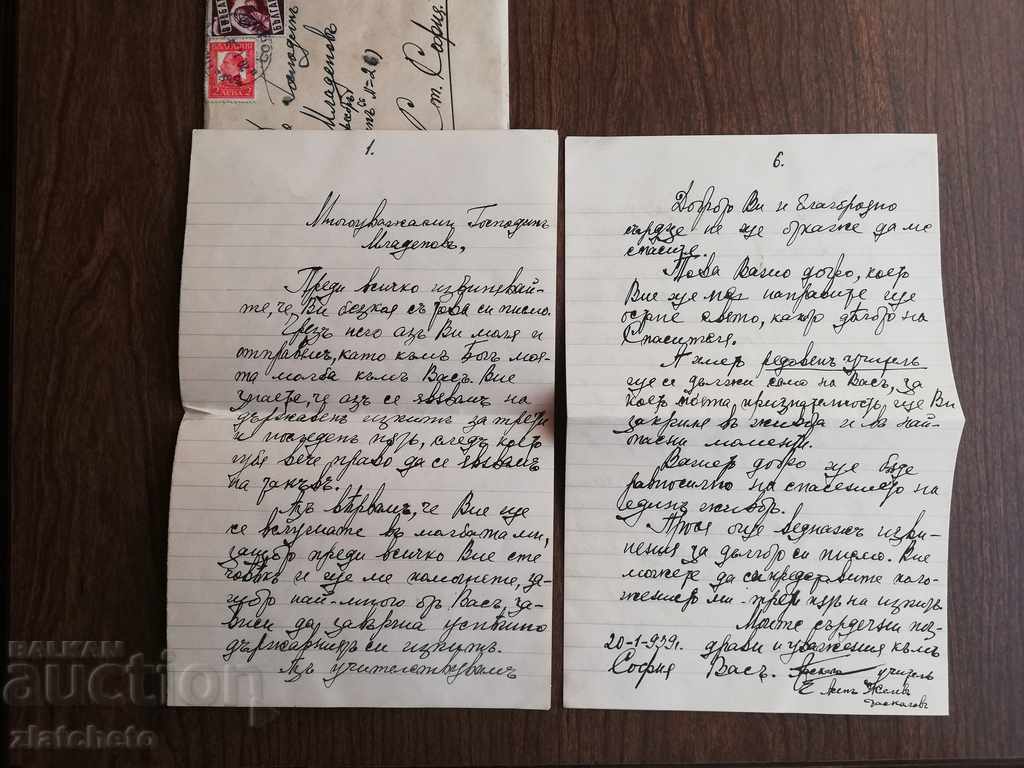 БЪЛГАРИЯ
2 ЛЕВА 2
Господинъ
Младеновъ
№-26)
гр. София.
1.
Многоуважаеми Господинъ
Младеновъ,
Преди всичко извинявай-
те, че Ви безпокоя съ това си писмо.
Чрезъ него азъ Ви моля и
отправямъ, като къмъ Богъ моя-
та молба къмъ Васъ. Вие
знаете, че азъ се явявамъ на
държавенъ изпитъ за трети
и последенъ пѫть, следъ което
губя вече право да се явявамъ
на такъвъ.
Азъ вѣрвамъ, че Вие ще
се вслушате въ молбата ми,
защото преди всичко Вие сте
човѣкъ и ще ми помогнете, за-
щото най-много отъ Васъ, за-
виси да завърша успѣшно
държавния си изпитъ.
Азъ учителствувамъ
6.
Доброто Ви и благородно
сърдце не ще откаже да ме
спасите.
Това Ваше добро, което
Вие ще направите ще
остане свято, като дѣлото на
Спасителя.
А името редовенъ учитель
ще се дължи само на Васъ, за
което моята, признателность, ще Ви
закриля въ живота и въ най-
опасни моменти.
Вашето добро ще бѫде
равносилно на спасението на
единъ животъ.
Прося още веднажъ изви-
нения за дългото си писмо. Вие
можете да си представите поло-
жението ми - трети пѫть на изпитъ
Моите сърдечни поз-
20-1-939г. драви и уважения къмъ
София Васъ. учитель
BALKAN
auction
zlatcheto